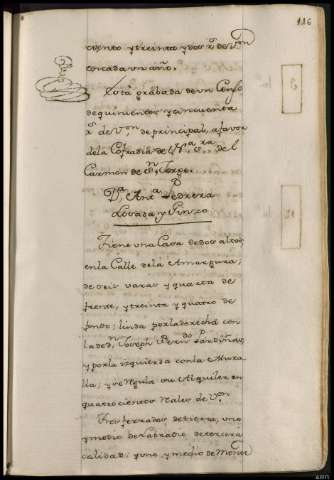 116
ciento y treinta y dos r.s de V.on
en cada un año.
Está grabada de un Censo
de quinientos y cinquenta
r.s de V.on de principal, a favor
de la Cofradia de N.a S.ra del
Carmen de S.n Jorge.
D.a Ana Pedrera
Losada y Pinzo
Tiene una Casa de dos altos
en la Calle de la Amargura;
de seis varas y quarta de
frente, y treinta y quatro de
fondo; linda por la derecha con
la de D.n Joseph Bern.do
y por la izquierda con la Mura
lla; y se regula su Alquiler en
quatrocientos Reales de V.on
Tres ferrados de tierra, uno
y medio de Labradio de tercera
calidad; y uno, y medio de Monte